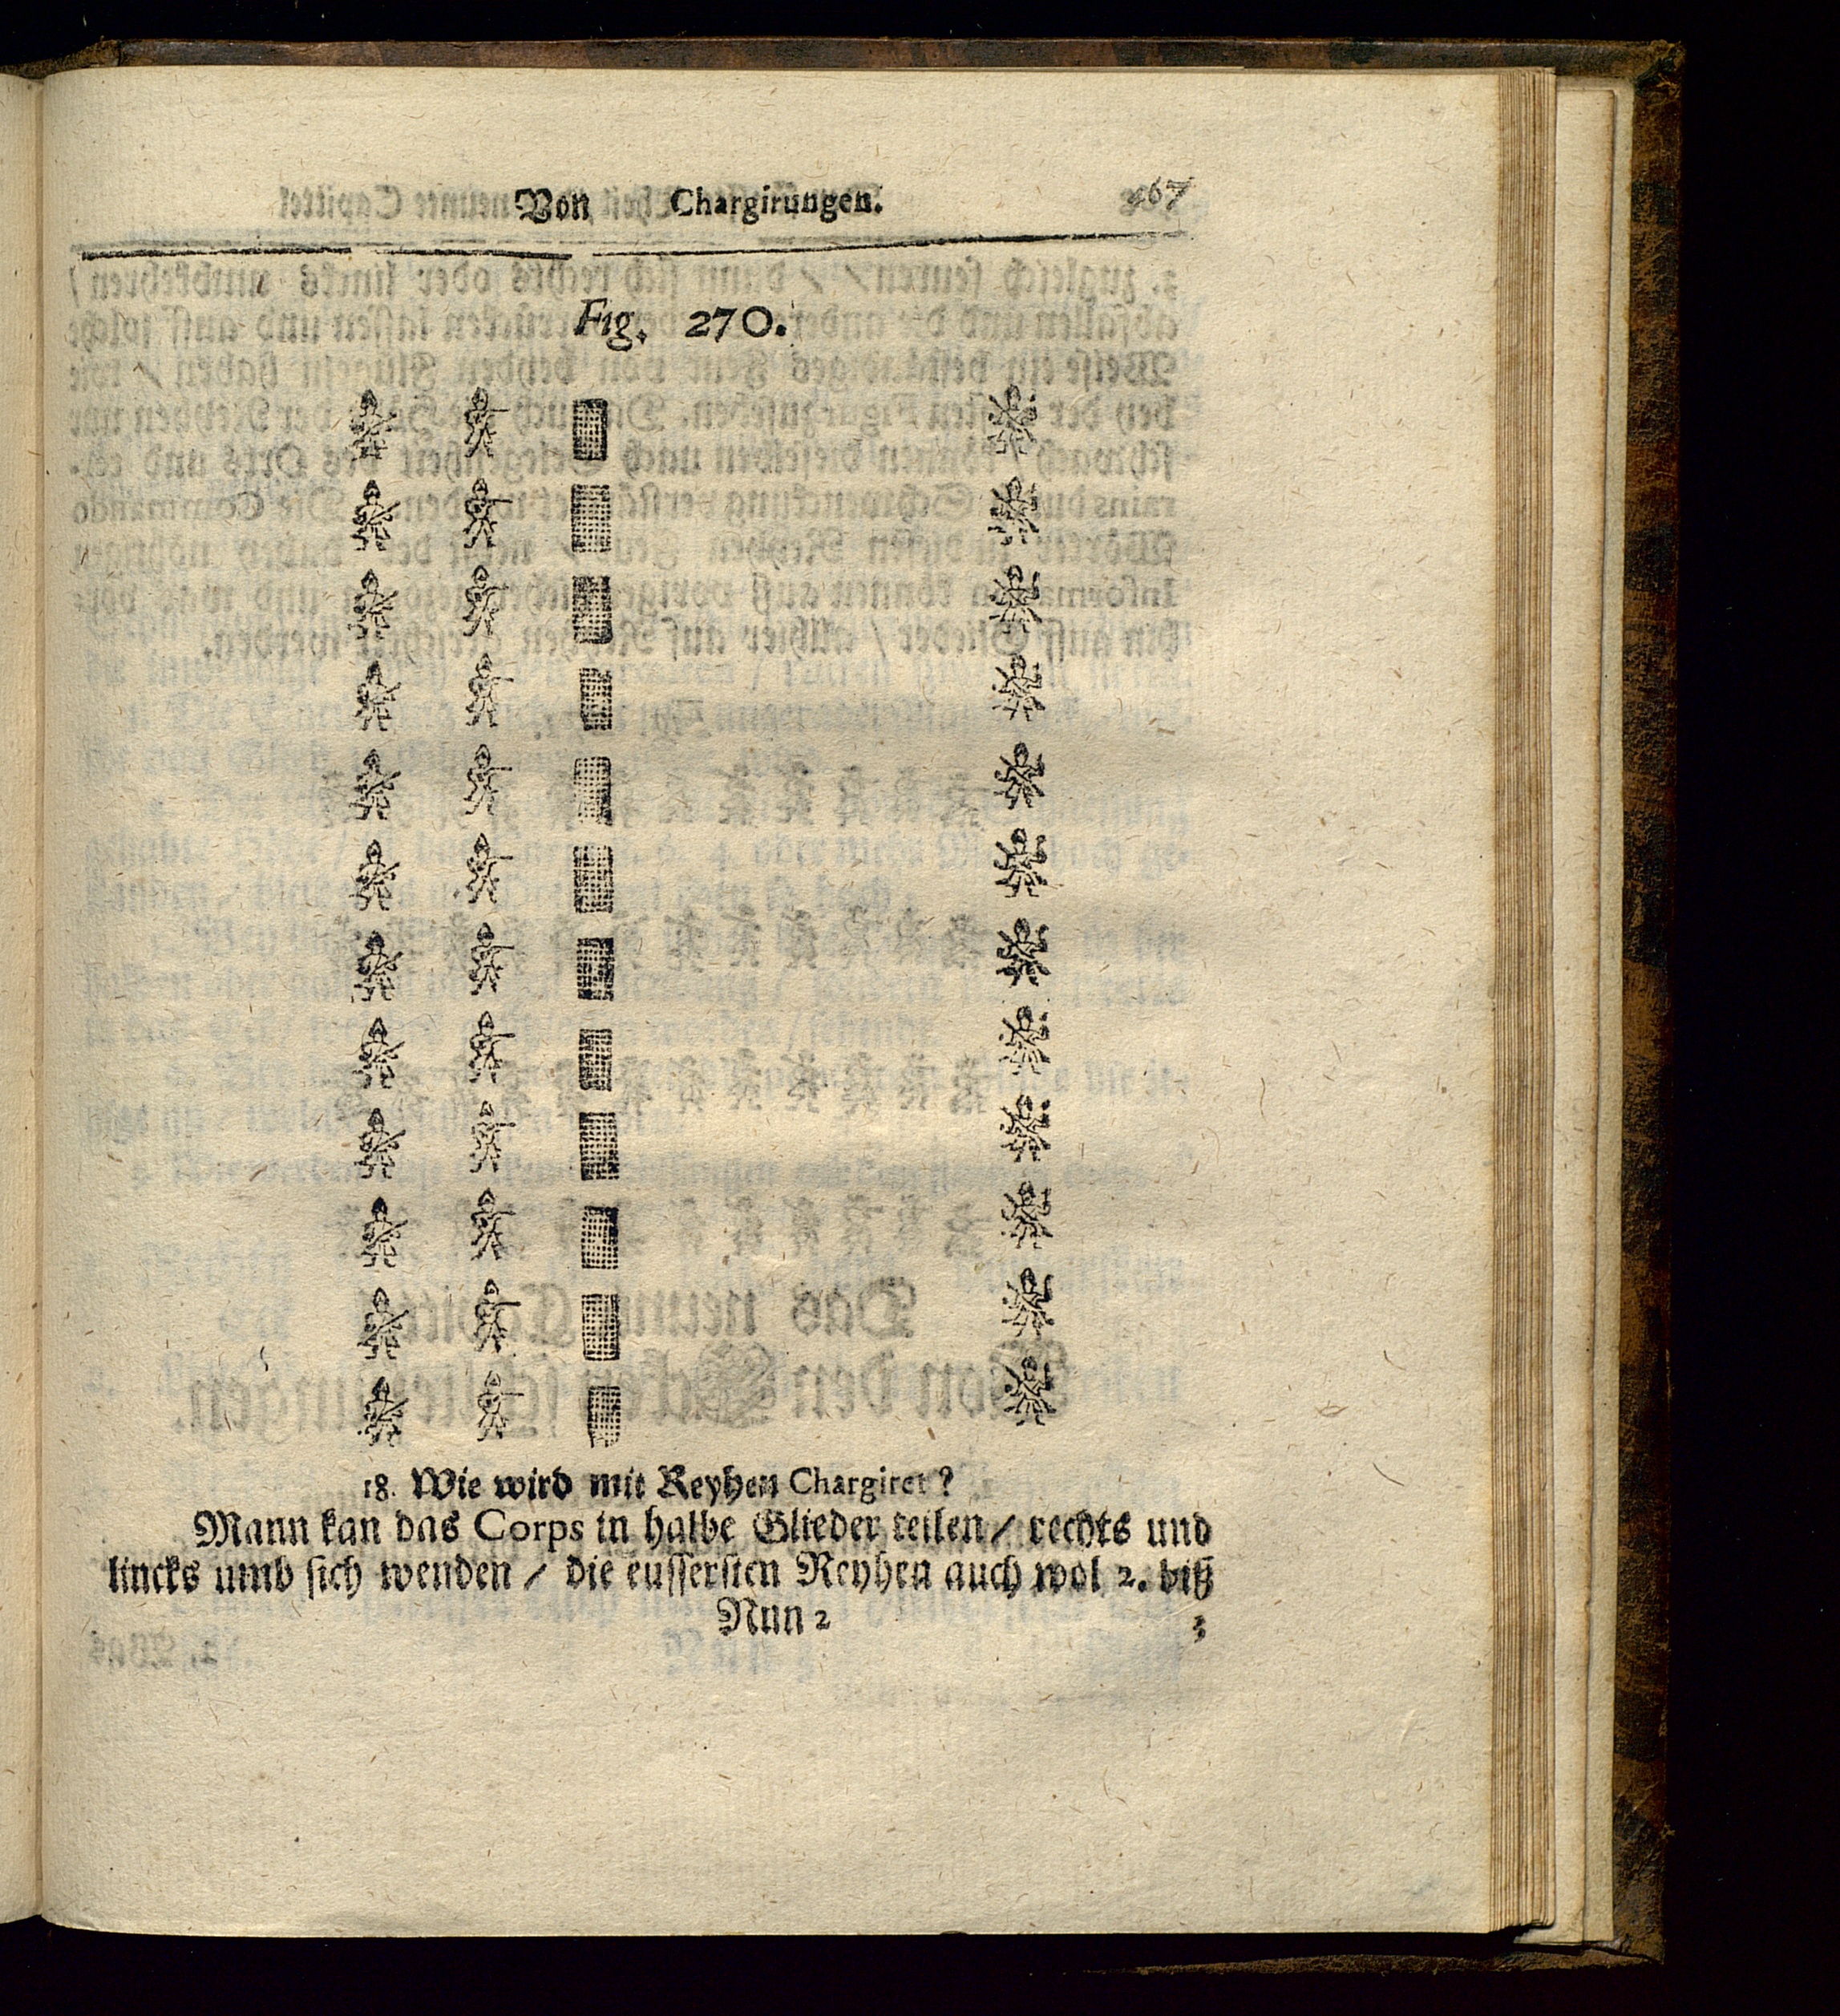 Von Chargirungen. 467
Fig. 270.
18. Wie wird mit Reyhen Chargiret?
Mann kan das Corps in halbe Glieder teilen / rechts und
lincks umb sich wenden / die eussersten Reyhen auch wol 2. biß
Nnn 2 3